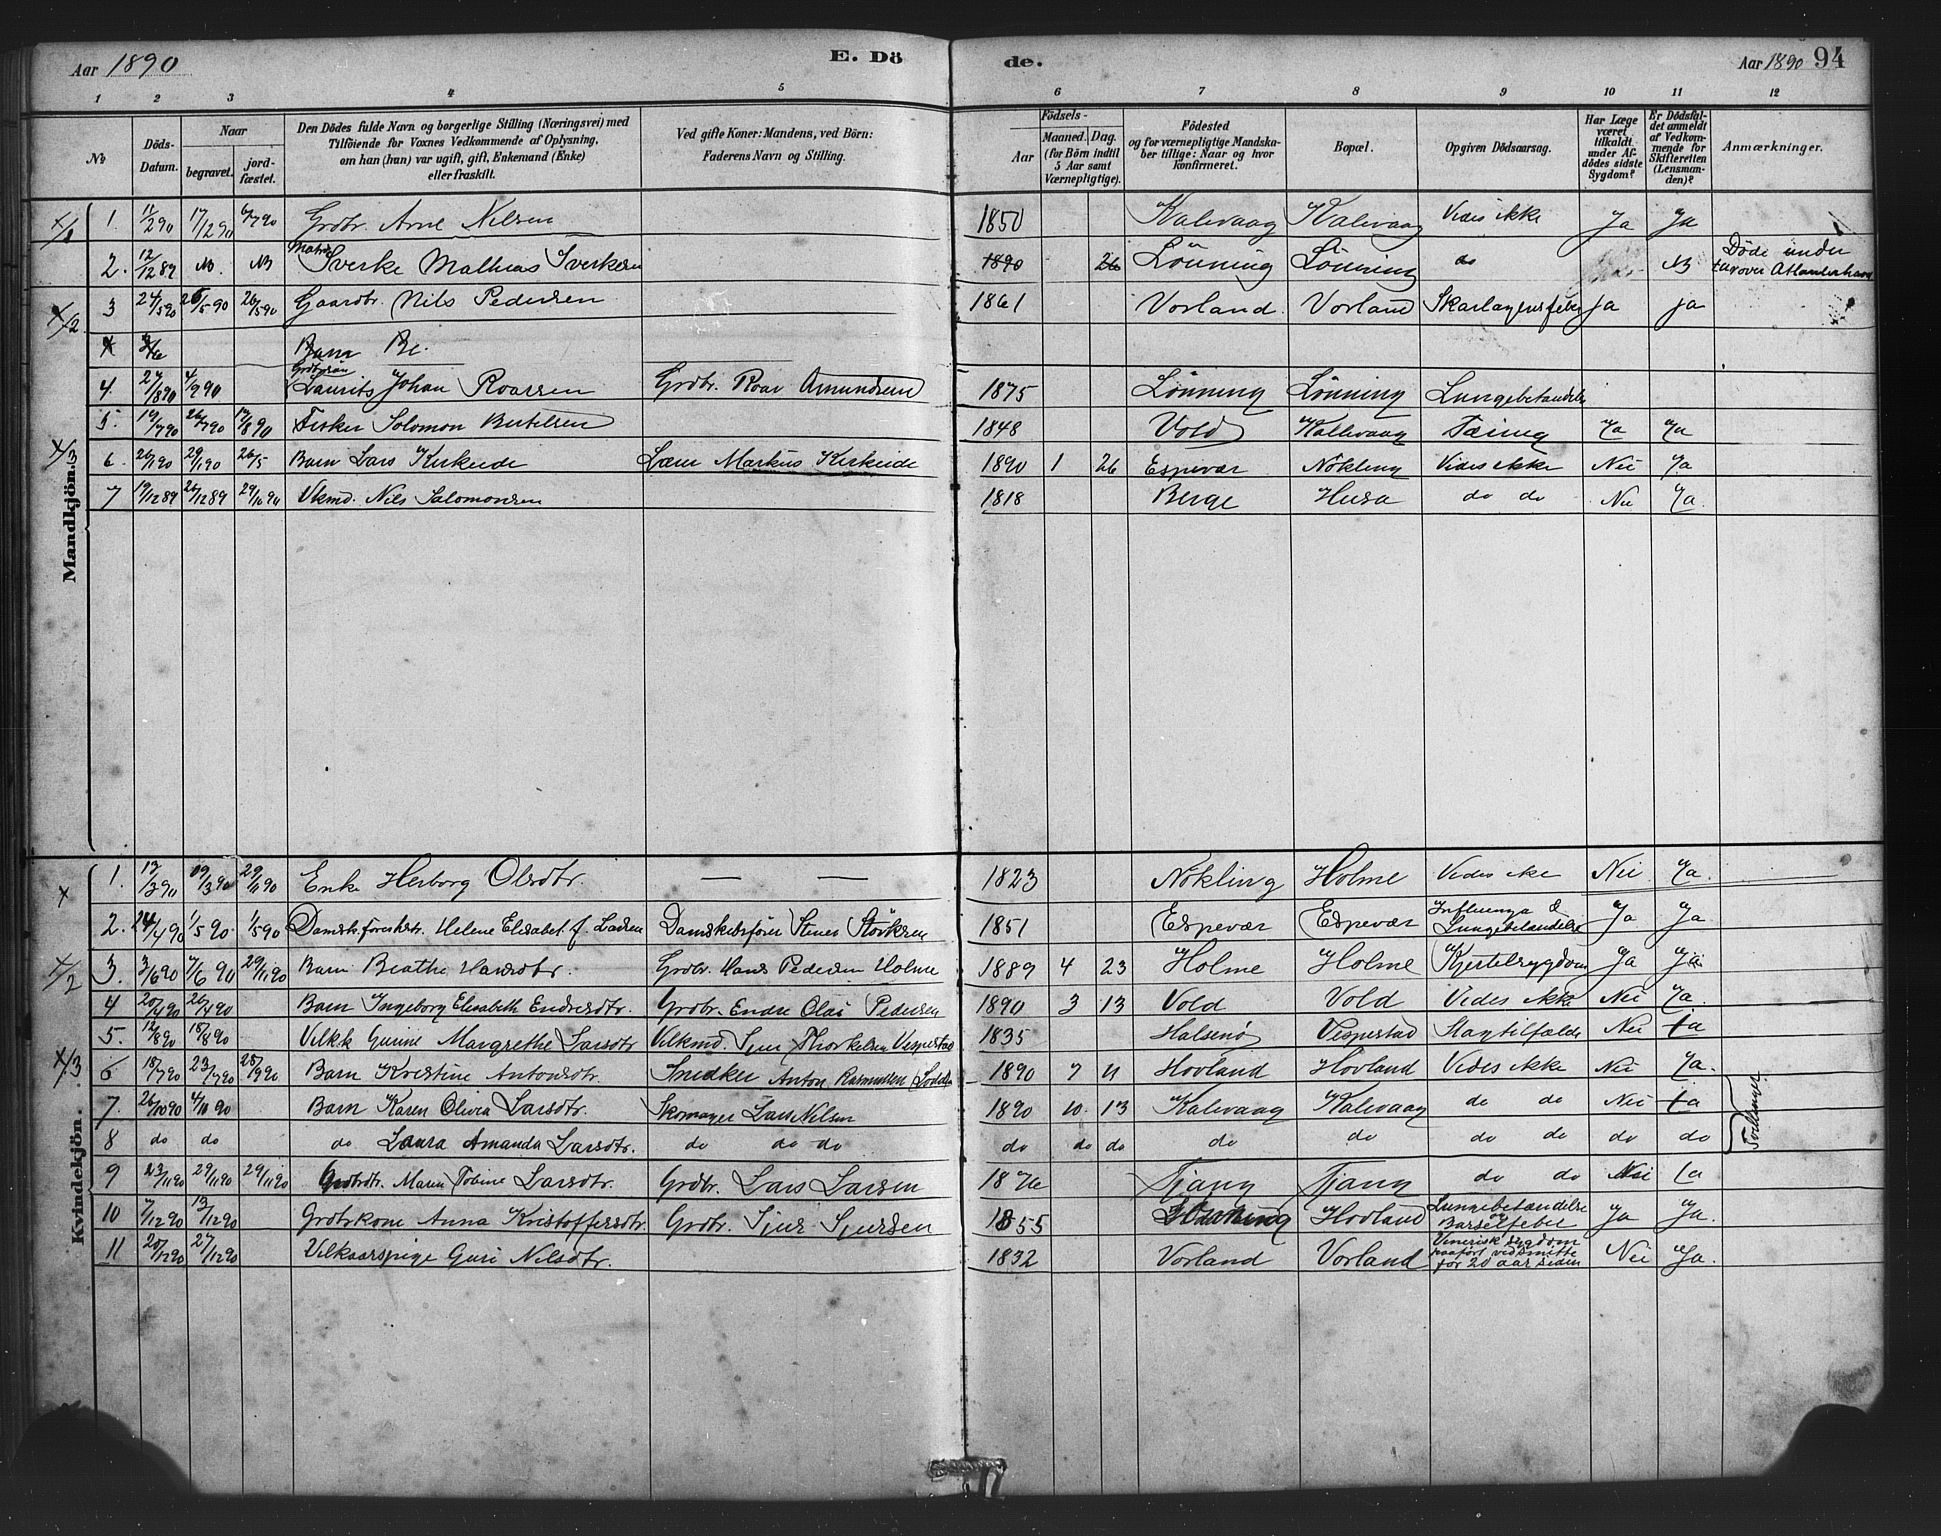 Aar 1890 E. Dö de. Aar 1890 94
1 2 3 4 5 6 7 8 9 10 11 12
No
Döds-Datum.
Naar begravet. jord-fæstet.
Den Dödes fulde Navn og borgerlige Stilling (Næringsvei) med
Tilföiende for Voxnes Vedkommende af Oplysning,
om han (hun) var ugift, gift, Enkemand (Enke)
eller fraskilt.
Ved gifte Koner: Mandens, ved Börn:
Faderens Navn og Stilling.
Födsels-
Aar Maaned. Dag.
(for Börn indtil
5 Aar samt
Værnepligtige).
Födested
og for værnepligtige Mandska-
ber tillige: Naar og hvor
konfirmeret.
Bopæl.
Opgiven Dödsaarsag.
Har Læge
været
tilkaldt
under Af-
dödes sidste
Sygdom?
Er Dödsfal-
det anmeldt
af Vedkom-
mende for
Skifteretten
(Lensman-
den)?
Anmærkninger.
Mandkjön.
1. 11/2 90 17/2 90 Grdbr. Arne Nilsen 1850 Kalevaag Kalevaag Vides ikke Ja Ja
2. 12/12 89 Sverke Mathias Sverksen 1890 26 Lönning Lönning do Döde under
over Atlanterhavet
3 24/5 90 26/5 90 26/5 90 Gaardbr. Nils Pedersen 1861 Vorland Vorland Skarlagensfeber Ja ja
Barn Be.
4. 27/8 90 4/9 90 Laurits Johan Roarsen Grdbr. Roar Amundsen 1875 Lönning Lönning Lungebetændelse
5. 19/7 90 26/7 90 17/8 90 Fisker Solomon Bertelsen 1848 Vold Kallevaag Tæring Ja Ja
6. 26/1 90 29/1 90 26/5 Barn Lars Kirkeide Lærer Markus Kirkeide 1890 1 26 Espevær Nökling Vides ikke Nei Ja
7 19/12 89 26/12 89 29/10 90 Vkmd. Nils Salomonsen 1818 Berge Husa do do Nei Ja.
Kvindekjön.
1. 13/3 90 19/3 90 29/11 90 Enke Herborg Olsdtr. — — 1823 Nökling Holme Vides ikke Nei Ja.
2. 24/4 90 1/5 90 1/5 90 Helene Elisabet f. Larsen Damskibsförer Stener Störksen 1851 Espevær Espevær Influenza &
Lungebetændelse Ja Ja
3. 3/6 90 7/6 90 29/11 90 Barn Beathe Hansdtr. Grdbr. Hans Pedersen Holme 1889 4 23 Holme Holme Kjertelsygdom Ja Ja
4 20/4 90 26/4 90 Barn Ingeborg Elisabeth Endresdtr. Grdbr. Endre Olai Pedersen 1890 3 13 Vold Vold Vides ikke Nei Ja.
5. 12/8 90 18/8 90 Vilkk Gurine Margrethe Larsdtr Vilkmd. Sjur Thorkelsen Vespestad 1835 Halsenö Vespestad Slagtilfælde Nei Ja
6 18/7 90 23/7 90 28/9 90 Barn Kristine Antonsdtr. Snedker Anton Rasmussen 1890 7 11 Hovland Hovland Vides ikke Nei Ja.
7. 26/10 90 4/11 90 Barn Karen Olivia Larsdtr. Skomager Lars Nilsen 1890 10. 13 Kalevaag Kalevaag do do Nei Ja Tvillinger
8 do do do Laura Amanda Larsdtr. do do do do do do do do do do do do
9 23/11 90 29/11 90 29/11 90 Grdbrdtr. Maren Tobine Larsdtr. Grdbr. Lars Larsen 1876 Tjang Tjang do do Nei Ja
10 7/12 90 13/12 90 Grdbrkone Anna Kristoffersdtr. Grdbr. Sjur Sjursen 1855 Hovland Lungebetændelse
og
Barselfeber Ja Ja.
11 20/12 90 27/12 90 Vilkaarspige Guri Nilsdtr. 1832 Vorland Vorland Venerisk sygdom
paafört ved smitte
for 20 aar siden Nei Ja.